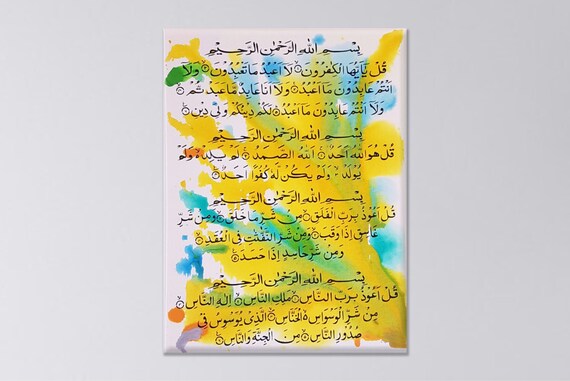 بِسْمِ اللهِ الرَّحْمٰنِ الرَّحِيْمِ
قُلْ يٰٓاَيُّهَا الْكٰفِرُوْنَ ۙ لَآ اَعْبُدُ مَا تَعْبُدُوْنَ ۙ وَلَآ
اَنْتُمْ عٰبِدُوْنَ مَآ اَعْبُدُ ۚ وَلَآ اَنَا عَابِدٌ مَّا عَبَدْتُّمْ ۙ
وَلَآ اَنْتُمْ عٰبِدُوْنَ مَآ اَعْبُدُ ۗ لَكُمْ دِيْنُكُمْ وَلِيَ دِيْنِ
بِسْمِ اللهِ الرَّحْمٰنِ الرَّحِيْمِ
قُلْ هُوَ اللهُ اَحَدٌ ۚ اَللهُ الصَّمَدُ ۚ لَمْ يَلِدْ ۙ وَلَمْ
يُوْلَدْ ۙ وَلَمْ يَكُنْ لَّهٗ كُفُوًا اَحَدٌ
بِسْمِ اللهِ الرَّحْمٰنِ الرَّحِيْمِ
قُلْ اَعُوْذُ بِرَبِّ الْفَلَقِ ۙ مِنْ شَرِّ مَا خَلَقَ ۙ وَمِنْ شَرِّ
غَاسِقٍ اِذَا وَقَبَ ۙ وَمِنْ شَرِّ النَّفّٰثٰتِ فِى الْعُقَدِ ۙ
وَمِنْ شَرِّ حَاسِدٍ اِذَا حَسَدَ
بِسْمِ اللهِ الرَّحْمٰنِ الرَّحِيْمِ
قُلْ اَعُوْذُ بِرَبِّ النَّاسِ ۙ مَلِكِ النَّاسِ ۙ اِلٰهِ النَّاسِ ۙ
مِنْ شَرِّ الْوَسْوَاسِ ۙ الْخَنَّاسِ ۙ الَّذِيْ يُوَسْوِسُ فِيْ
صُدُوْرِ النَّاسِ ۙ مِنَ الْجِنَّةِ وَالنَّاسِ